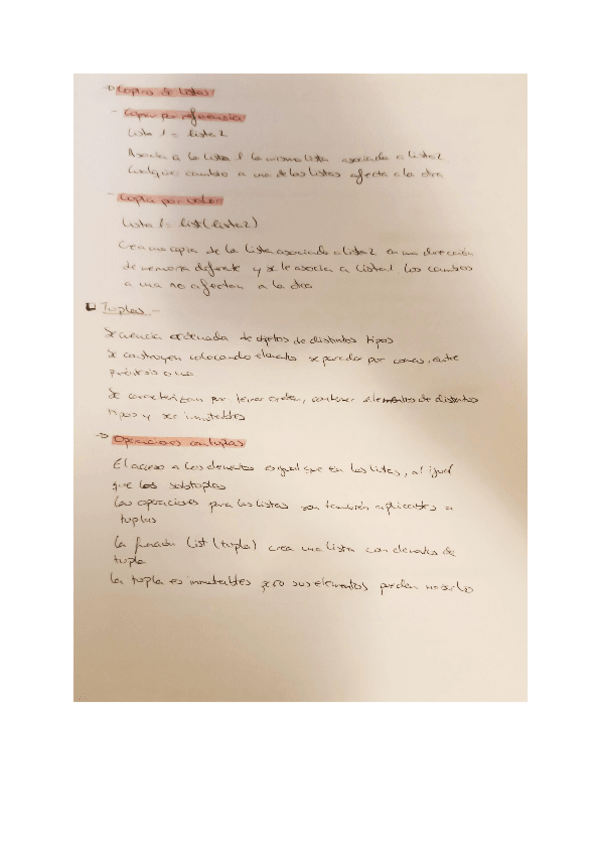 → Copias de listas
- Copia por referencia
Lista 1 = lista 2
Asocia a la lista 1 la misma lista asociada a lista 2.
Cualquier cambio a una de las listas afecta a la otra
- Copia por valor
Lista 1 = list(lista2)
Crea una copia de la lista asociada a lista 2 en una dirección
de memoria diferente y se le asocia a lista 1. Los cambios
a una no afectan a la otra
Tuplas.-
Secuencia ordenada de objetos de distintos tipos
Se construyen colocando elementos separados por comas, entre
paréntesis o no
Se caracterizan por tener orden, contener elementos de distintos
tipos y ser inmutables
→ Operaciones con tuplas
El acceso a los elementos es igual que en las listas, al igual
que las subtuplas
Las operaciones para las listas son también aplicables a
tuplas
La función list(tupla) crea una lista con elementos de
tupla
La tupla es inmutables pero sus elementos pueden no serlo